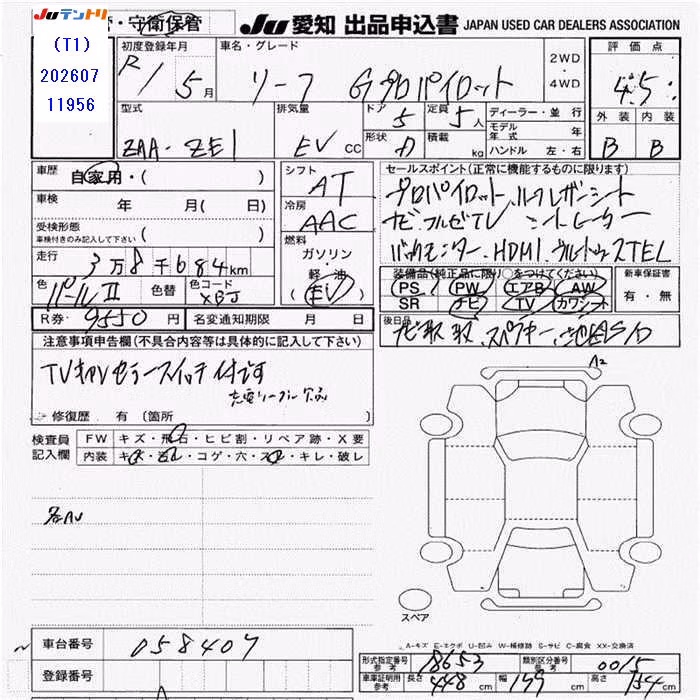 JUテントリ
(T1)
202607
11956
・守衛保管
JU 愛知 出品申込書 JAPAN USED CAR DEALERS ASSOCIATION
初度登録年月 R1 5月
車名・グレード リーフ Gプロパイロット
2WD・4WD
評価点 4.5
外装 内装
B B
型式 ZAA-ZE1
排気量 EV CC
ドア 5 定員 5人
形状 積載 kg
ディーラー・並行
モデル年式 年
ハンドル 左・右
車歴 自家用・( )
車検 年 月( 日)
受検形態
車検付きのみ記入して下さい ( )
走行 3万8千684km
色 パールII 色替 色コード XBJ
R券・9550円 名変通知期限 月 日
シフト AT
冷房 AAC
燃料
ガソリン・軽油
(EV)
セールスポイント(正常に機能するものに限ります)
プロパイロット、レザーシート
ナビ・フルセTV シートヒーター
バックモニター、HDMI
装備品(純正品に限り○をつけてください)
PS PW エアB AW
SR ナビ TV カワシート
新車保証書
有・無
後日品 ナビ取
注意事項申告欄(不具合内容等は具体的に記入して下さい)
TVキャンセラースイッチ付です
充電 欠品
修復歴 有(箇所 )
検査員記入欄
FW キズ・飛石・ヒビ割・リペア跡・X要
内装 キズ・汚レ・コゲ・穴・スレ・キレ・破レ
各AU
A2
スペア
A-キズ E-エクボ U-凹み W-補修跡 S-サビ C-腐食 XX-交換済
車台番号 058407
登録番号
形式指定番号参考 18653 類別区分番号参考 0015
車庫証明用参考 長さ 448cm 幅 179cm 高さ 154cm